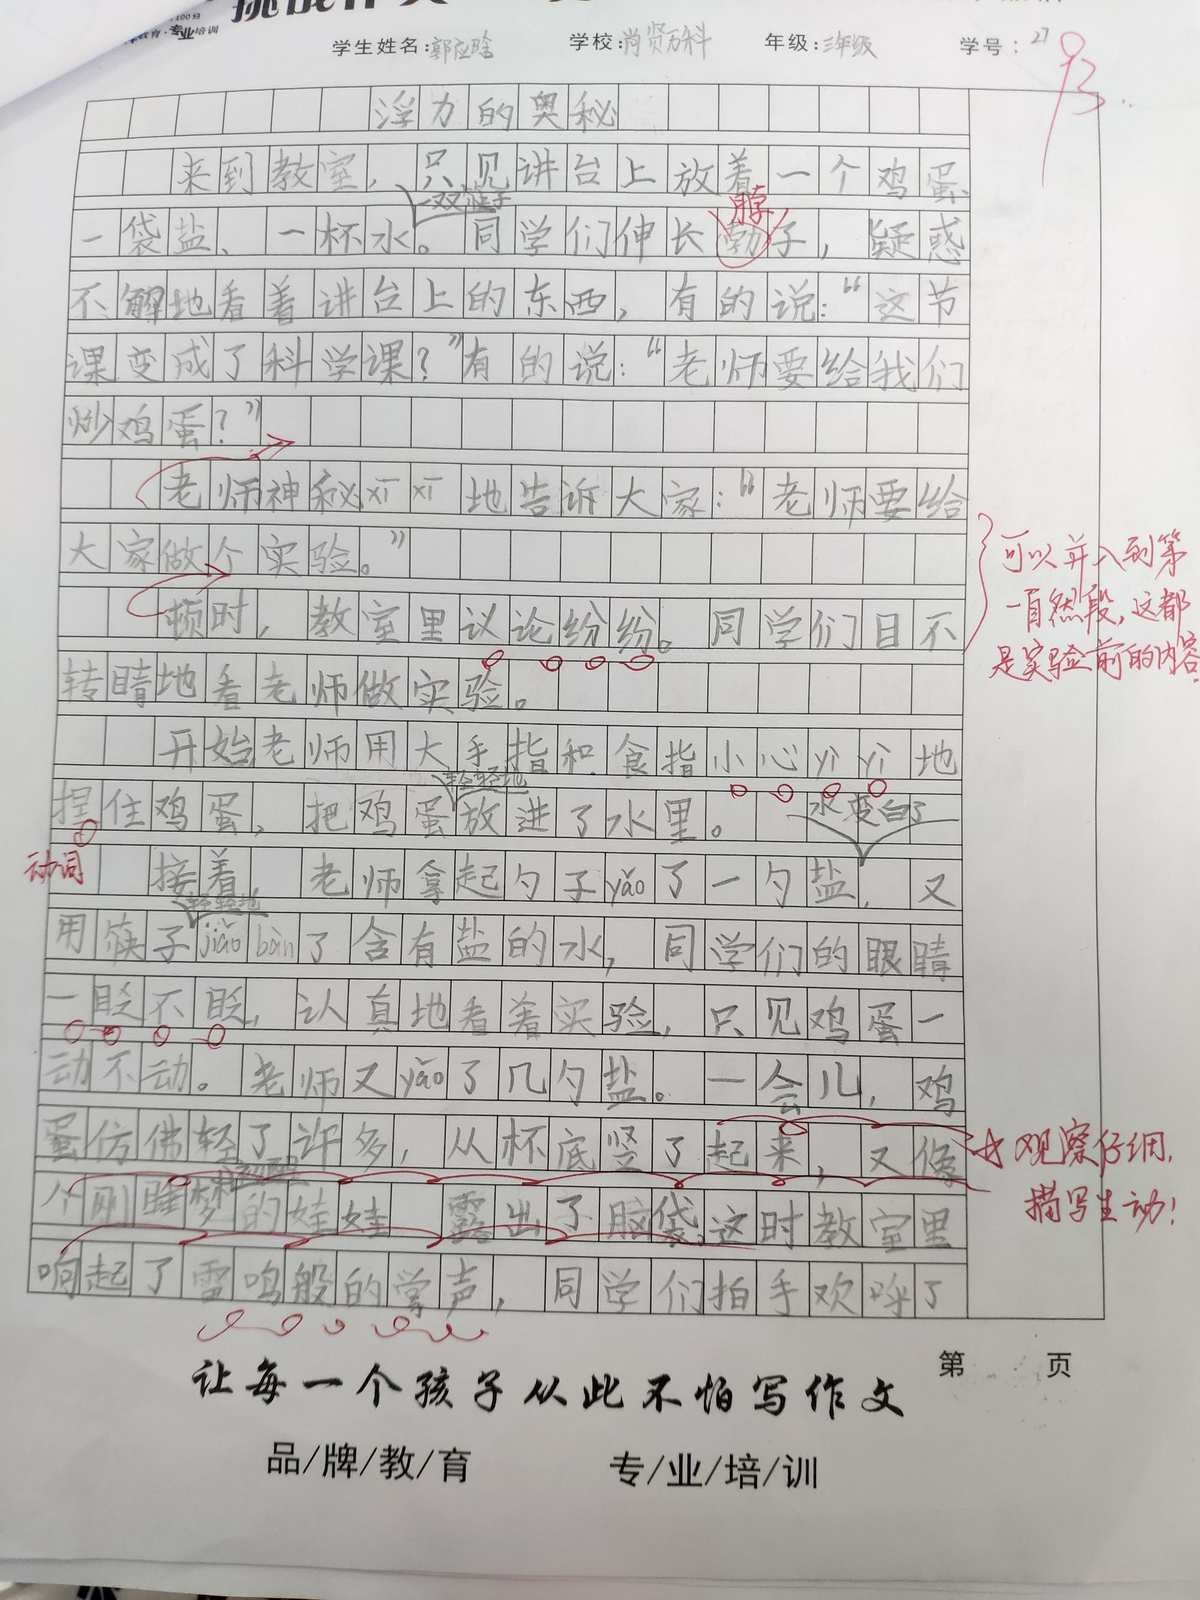 学生姓名:郭应晗 学校:尚贤万科 年级:三年级 学号:27
93
浮力的奥秘
来到教室，只见讲台上放着一个鸡蛋、
一双筷子
脖
一袋盐、一杯水。同学们伸长勃子，疑惑
不解地看着讲台上的东西，有的说：“这节
课变成了科学课？”有的说：“老师要给我们
炒鸡蛋？”
老师神秘xīxī地告诉大家：“老师要给
大家做个实验。”
可以并入到第
一自然段，这都
是实验前的内容.
顿时，教室里议论纷纷。同学们目不
转睛地看老师做实验。
开始老师用大手指和食指小心yìyì地
轻轻地
捏住鸡蛋，把鸡蛋放进了水里。
水变白了
动词
接着 老师拿起勺子yǎo了一勺盐，又
轻轻地
用筷子jiǎo bàn了含有盐的水，同学们的眼睛
一眨不眨，认真地看着实验，只见鸡蛋一
动不动。老师又yǎo了几勺盐。一会儿，鸡
蛋仿佛轻了许多，从杯底竖了起来，又像
观察仔细，
描写生动！
个刚睡梦的娃娃 露出了脑袋，这时教室里
响起了雷鸣般的掌声，同学们拍手欢呼了
第 页
让每一个孩子从此不怕写作文
品/牌/教/育 专/业/培/训